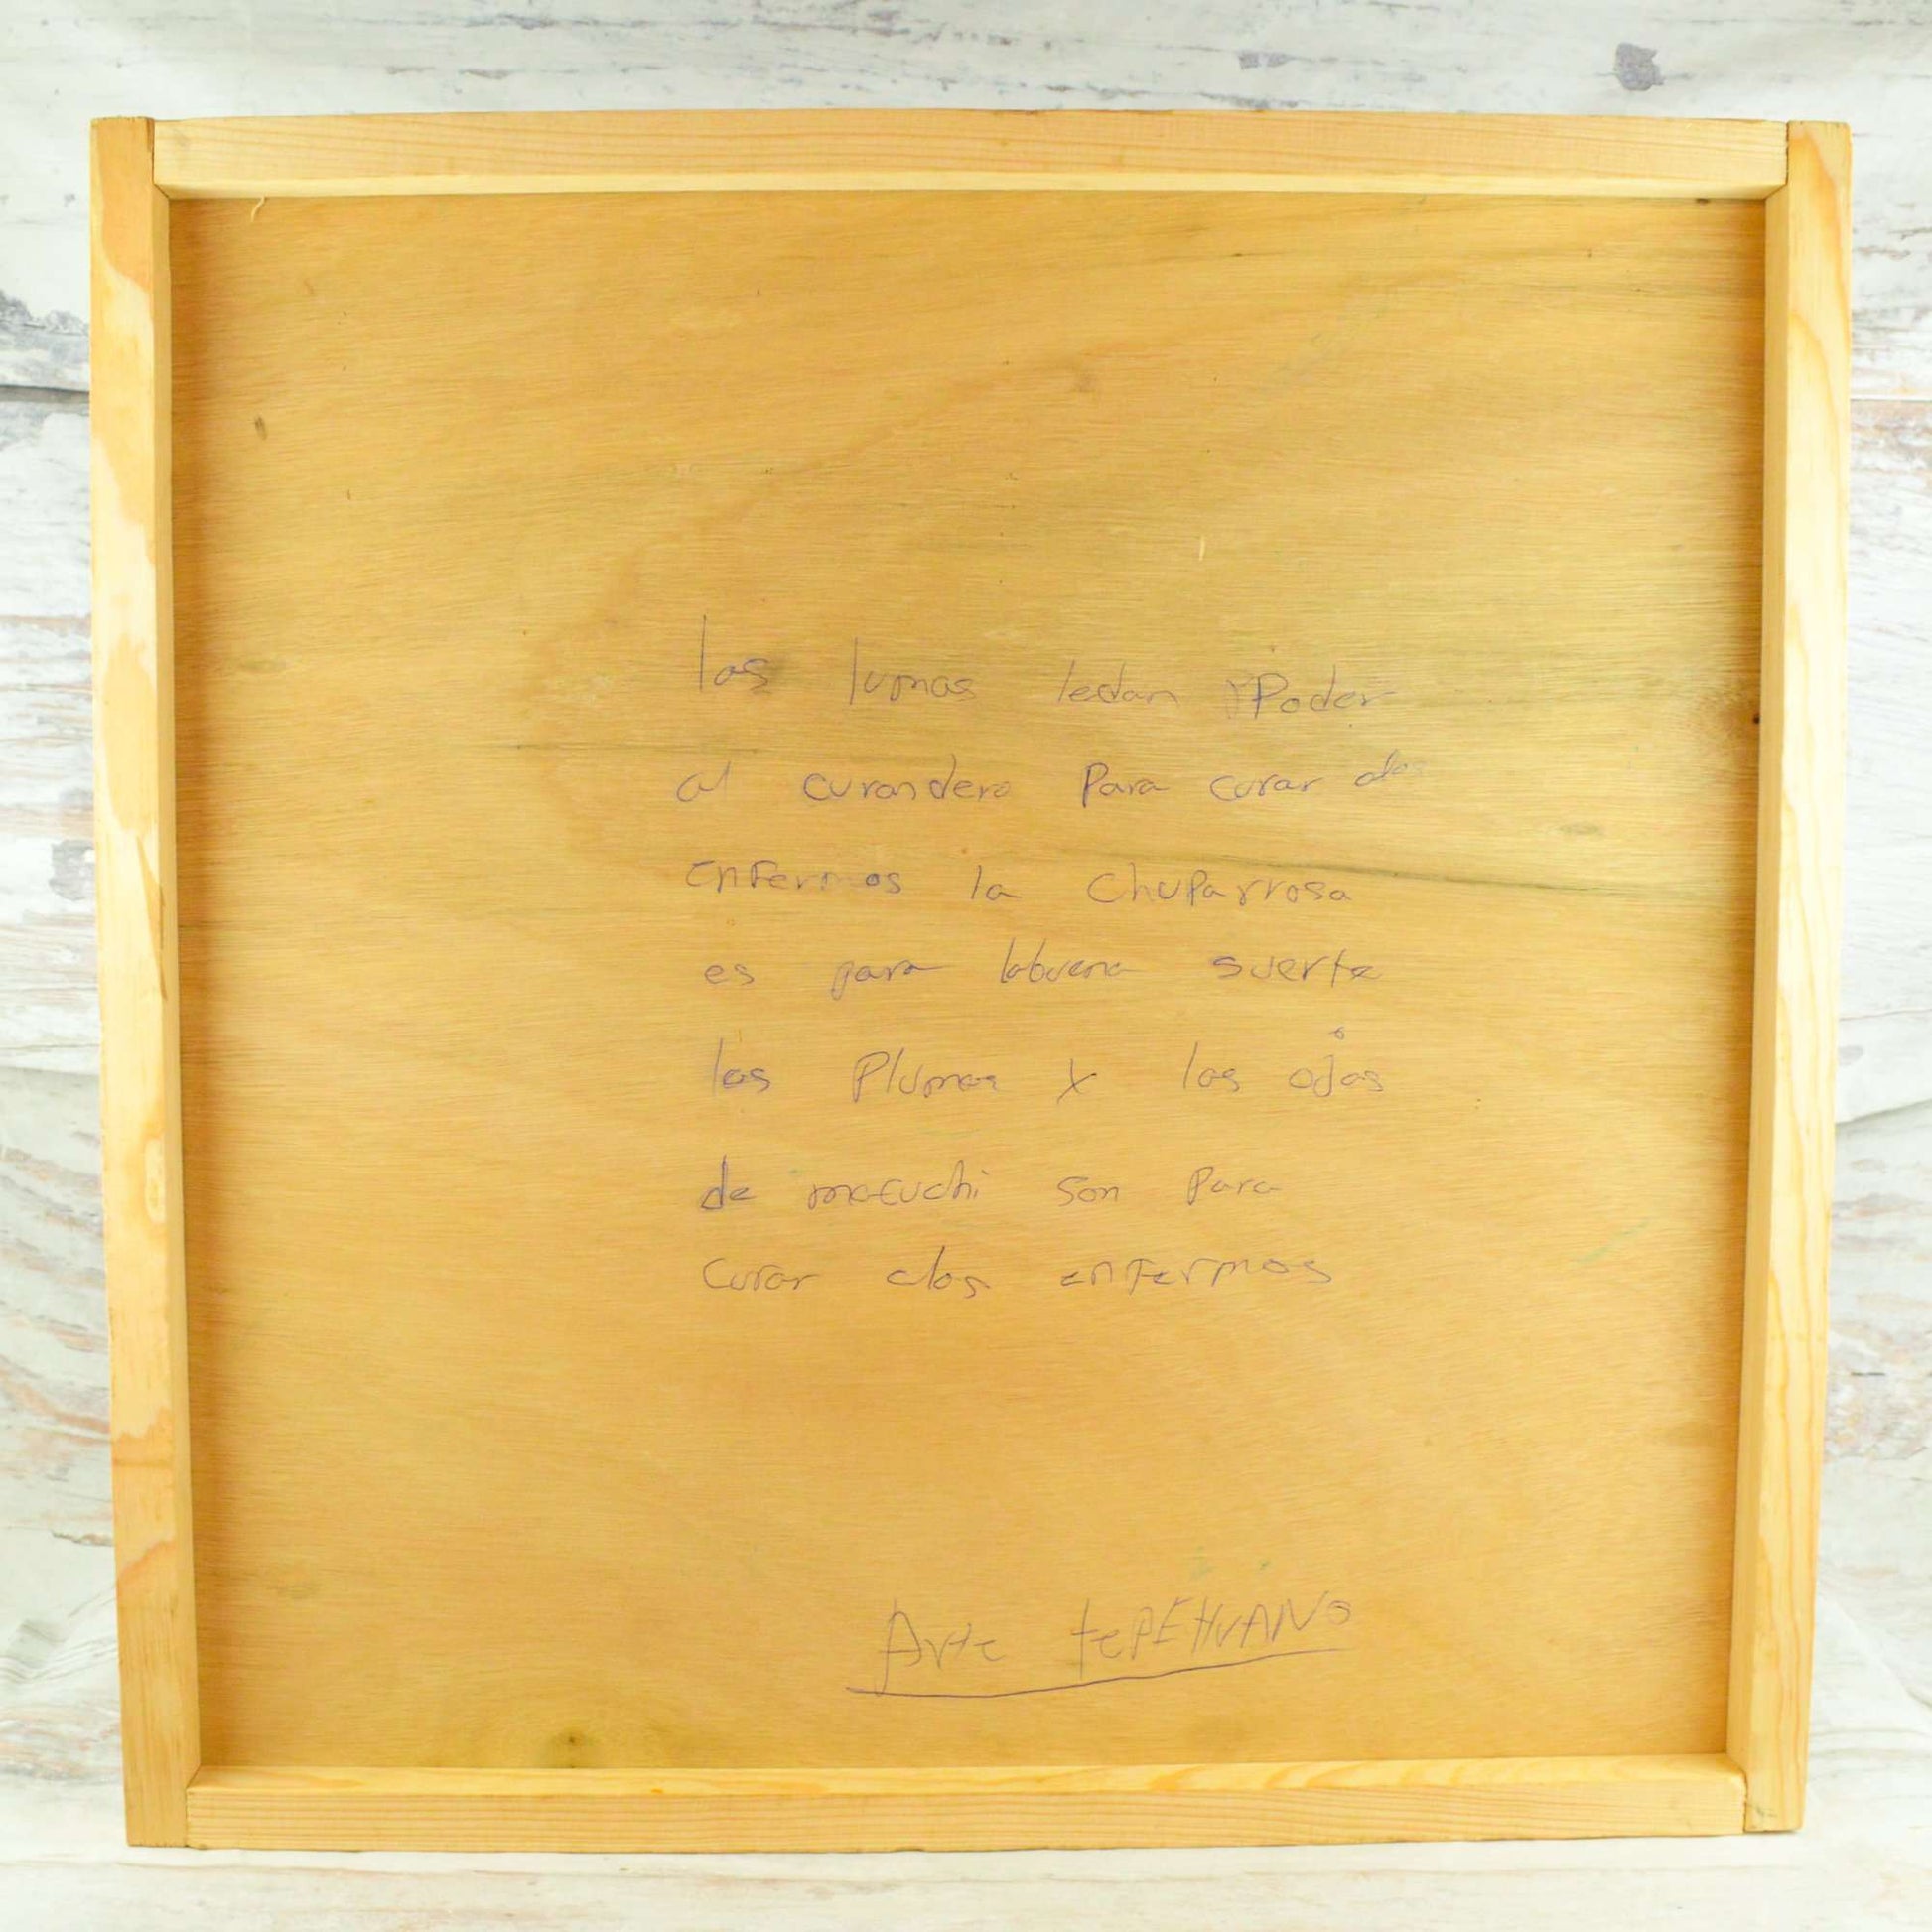 las lumas ledan Poder
al curandero Para curar alos
enfermos la Chuparrosa
es para labuena suerte
las Plumas y los ojos
de macuchi son Para
curar alos enfermos
Arte tePEHUANo